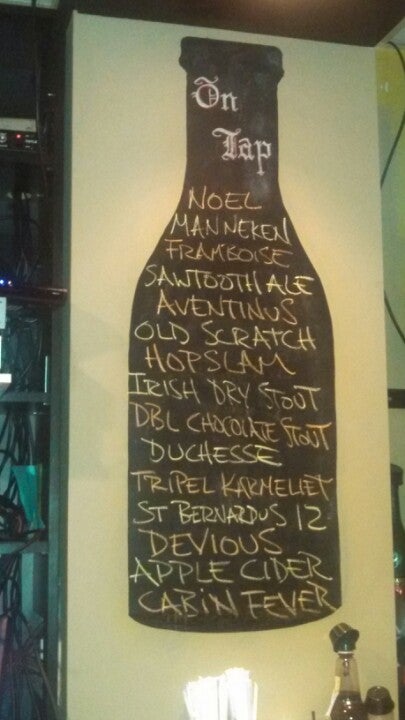 On
Tap
NOEL
MANNEKEN
FRAMBOISE
SAWTOOTH ALE
AVENTINUS
OLD SCRATCH
HOPSLAM
IRISH DRY STOUT
DBL CHOCOLATE STOUT
DUCHESSE
TRIPEL KARMELIET
ST BERNARDUS 12
DEVIOUS
APPLE CIDER
CABIN FEVER